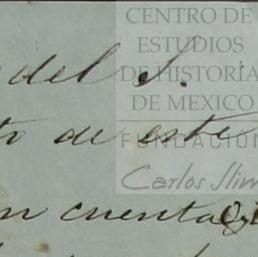 CENTRO DE
ESTUDIOS
DE HISTORIA
DE MEXICO
FUNDACION
Carlos Slim
del S.
to de este
en cuenta